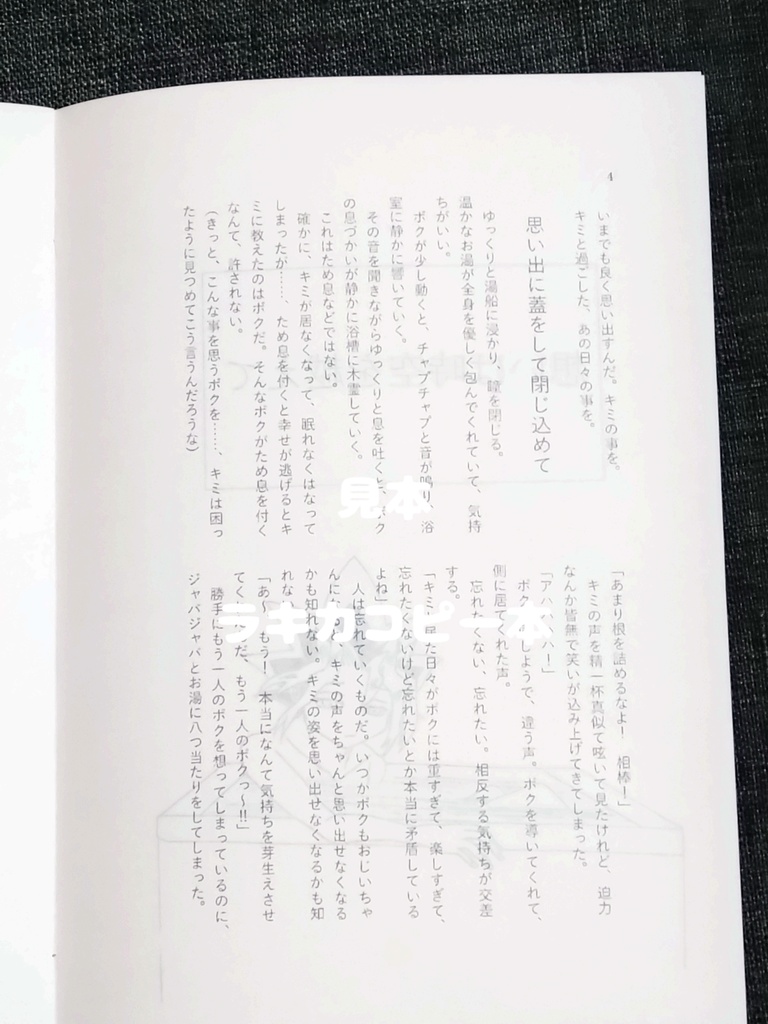 4
いまでも良く思い出すんだ。キミの事を。
キミと過ごした、あの日々の事を。
思い出に蓋をして閉じ込めて
ゆっくりと湯船に浸かり、瞳を閉じる。
温かなお湯が全身を優しく包んでくれていて、気持
ちがいい。
ボクが少し動くと、チャプチャプと音が鳴り、浴
室に静かに響いていく。
その音を聞きながらゆっくりと息を吐くと、ボク
の息づかいが静かに浴槽に木霊していく。
これはため息などではない。
確かに、キミが居なくなって、眠れなくはなって
しまったが……、ため息を付くと幸せが逃げるとキ
ミに教えたのはボクだ。そんなボクがため息を付く
なんて、許されない。
(きっと、こんな事を思うボクを……、キミは困っ
たように見つめてこう言うんだろうな)
「あまり根を詰めるなよ! 相棒!」
キミの声を精一杯真似て呟いて見たけれど、迫力
なんか皆無で笑いが込み上げてきてしまった。
「アハハ ハ!」
ボク しようで、違う声。ボクを導いてくれて、
側に居てくれた声。
忘れ くない、忘れたい。相反する気持ちが交差
する。
「キミ 居た日々がボクには重すぎて、楽しすぎて、
忘れたくないけど忘れたいとか本当に矛盾している
よね」
人は忘れていくものだ。いつかボクもおじいちゃ
んにな 、キミの声をちゃんと思い出せなくなる
かも知れない。キミの姿を思い出せなくなるかも知
れな
「あ〜 もう! 本当になんて気持ちを芽生えさせ
てく だ、もう一人のボクっ〜!!」
勝手にもう一人のボクを想ってしまっているのに、
ジャバジャバとお湯に八つ当たりをしてしまった。
見本
ラキカコピー本